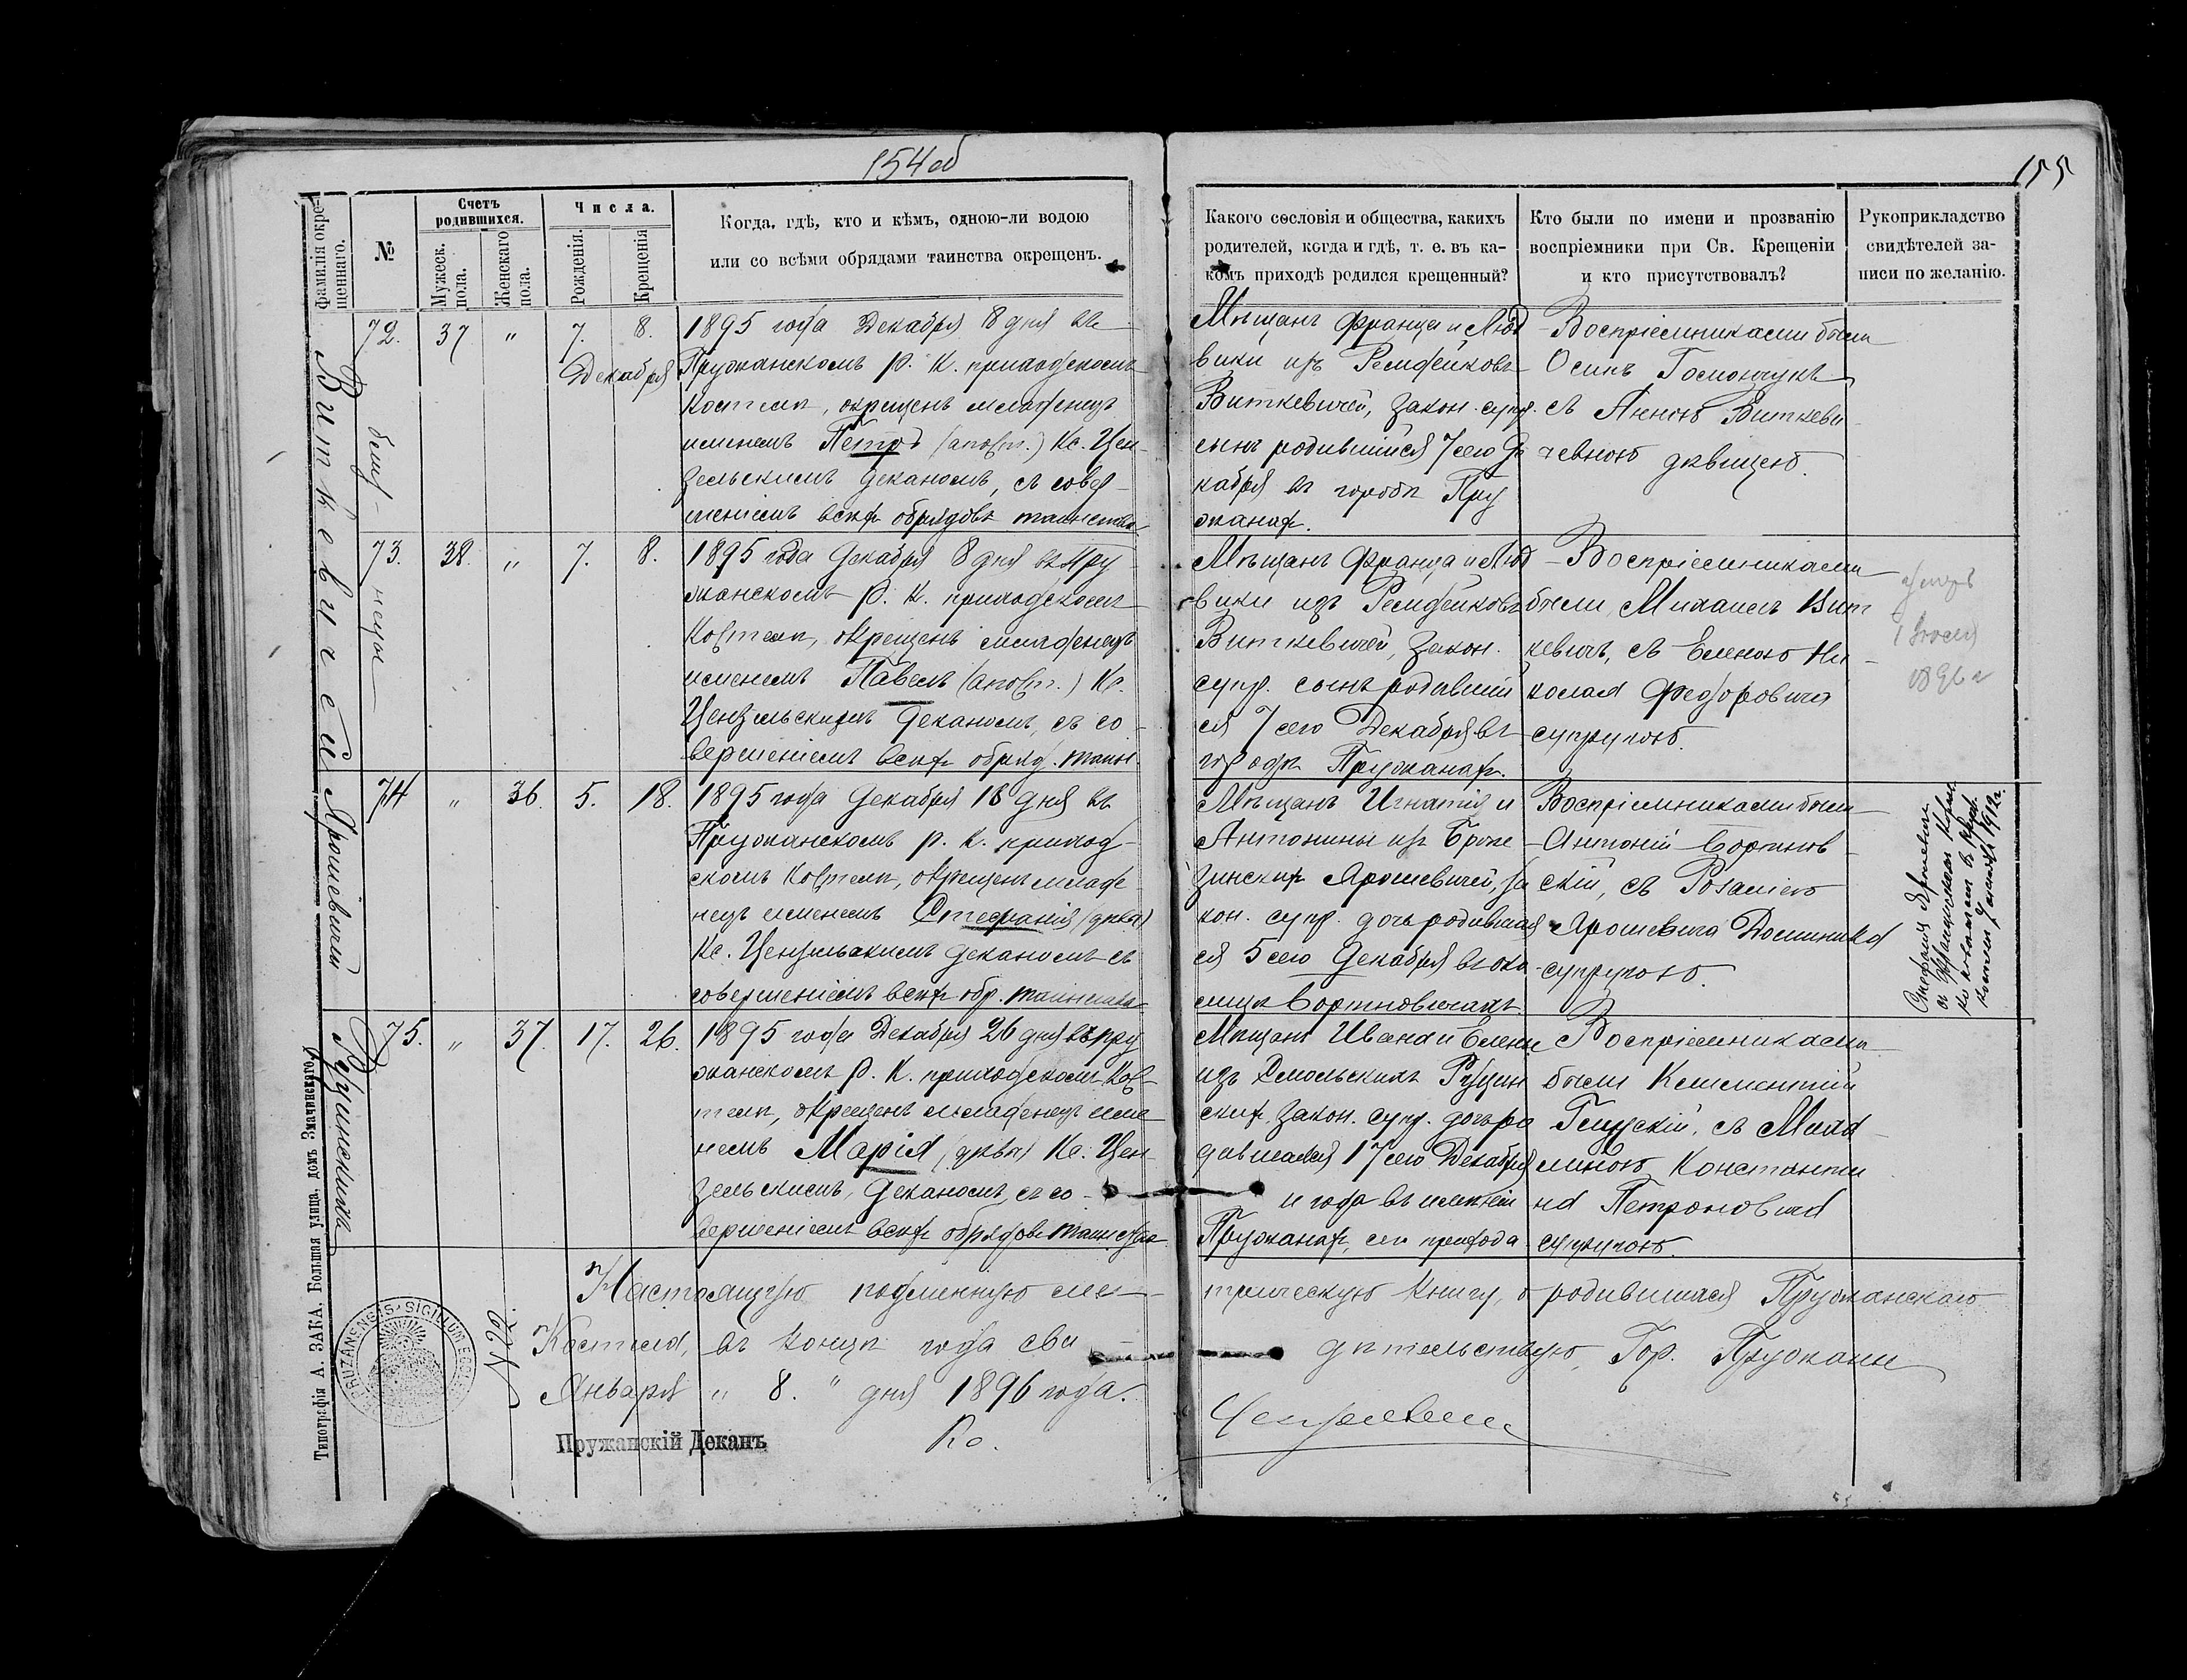 154 об
155
Фамилія окре-
щеннаго.
№
Счетъ
родившихся.
Мужеск.
пола.
Женскаго
пола.
Числа.
Рожденія.
Крещенія
Когда, гдѣ, кто и кѣмъ, одною-ли водою
или со всѣми обрядами таинства окрещенъ.
Какого сословія и общества, какихъ
родителей, когда и гдѣ, т. е. въ ка-
комъ приходѣ родился крещенный?
Кто были по имени и прозванію
воспріемники при Св. Крещеніи
и кто присутствовалъ?
Рукоприкладство
свидѣтелей за-
писи по желанію.
Виткевичей
72. 37 " 7. 8.
Декабря
1895 года Декабря 8 дня въ
Пружанскомъ Р. К. приходскомъ
костелѣ, окрещенъ младенецъ
именемъ Петръ (апост.) Кс. Цен-
зельскимъ Деканомъ, съ совер-
шеніемъ всѣхъ обрядовъ таинства
Мѣщанъ Франца и Люд
вики изъ Ремфейковъ
Виткевичей, закон. супр.
сынъ родившійся 7 сего Де
кабря въ городѣ Пру
жанахъ.
Воспріемниками были
Осипъ Гомончукъ
съ Анною Виткеви
чевною дѣвицею.
близ-
нецы
73. 38. " 7. 8.
1895 года Декабря 8 дня въ Пру
жанскомъ Р. К. приходскомъ
Костелѣ, окрещенъ младенецъ
именемъ Павелъ (апост.) Кс.
Цензельскимъ Деканомъ, съ со-
вершеніемъ всѣхъ обряд. таин.
Мѣщанъ Франца и Люд
вики изъ Ремфейковъ
Виткевичей, закон.
супр. сынъ родивший
ся 7 сего Декабря въ
городѣ Пружанахъ.
Воспріемниками
были, Михаилъ Вит
кевичъ, съ Еленою Ни-
колая Федоровича
супругою.
умеръ
1 Іюля
1896 г
Ярошевичей
74 " 36. 5. 18.
1895 года Декабря 18 дня въ
Пружанскомъ р. к. приход-
скомъ Костелѣ, окрещенъ младе-
нецъ именемъ Стефанія (дѣва)
Кс. Цензельскимъ деканомъ съ
совершеніемъ всѣхъ обр. таинства
Мѣщанъ Игнатія и
Антонины изъ Брже
зинскихъ Ярошевичей, за
кон. супр. дочь родившая
ся 5 сего Декабря въ око
лицѣ Бортновичахъ
Воспріемниками были
Антоній Бортнов
скій, съ Розаліею
Ярошевича Доминика
супругою.
Стефания Ярошевичъ
костелѣ 1912 г.
Рущинскихъ
75. " 37. 17. 26.
1895 года Декабря 26 дня въ Пру
жанскомъ Р. К. приходскомъ Кос-
телѣ, окрещенъ младенецъ име
немъ Марія (дѣва) Кс. Цен
зельскимъ, Деканомъ, съ со-
вершеніемъ всѣхъ обрядовъ таинства
Мѣщанъ Ивана и Елены
изъ Смольскихъ Рущин
скихъ, закон. супр. дочь ро
дившаяся 17 сего Декабря
и года въ имѣніи
Пружанахъ, сего прихода
Воспріемниками
были Климентій
съ
Константи
на Петроновича
супругою.
Настоящую подлинную ме-
трическую книгу, о родившихся Пружанскаго
Костела, въ концѣ года сви-
дѣтельствую, Гор. Пружаны
Января " 8. " дня 1896 года.
№ 20
Пружанскій Деканъ
Кс.
RUZANENSIS · SIGILLUM ECC
Типографія А. ЗАКА, Большая улица, домъ Змачинскаго.